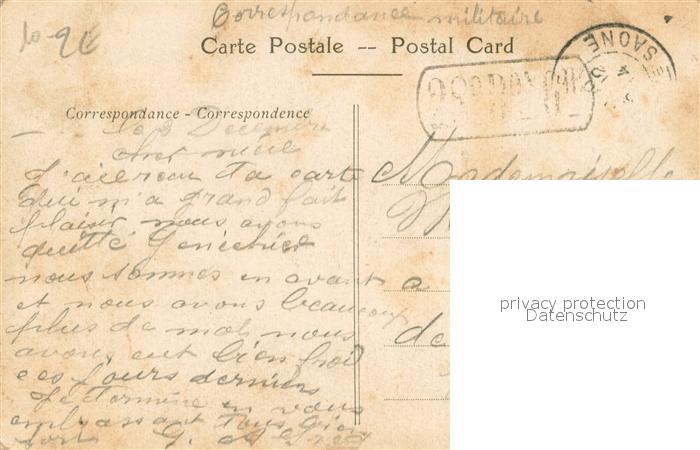 10-9E
Correspondance militaire
Carte Postale -- Postal Card
SAONE
Correspondance - Correspondence
le 8 Decembre
J'ai recu ta carte
qui m'a grand fait
plaisir nous avons
quitté
nous sommes en avant
et nous avons beaucoup
plus de mal nous
avons eut bien froid
ces jours derniers
Je termine en vous
embrassant tous bien
fort G.
Mademoiselle
a
de
privacy protection
Datenschutz